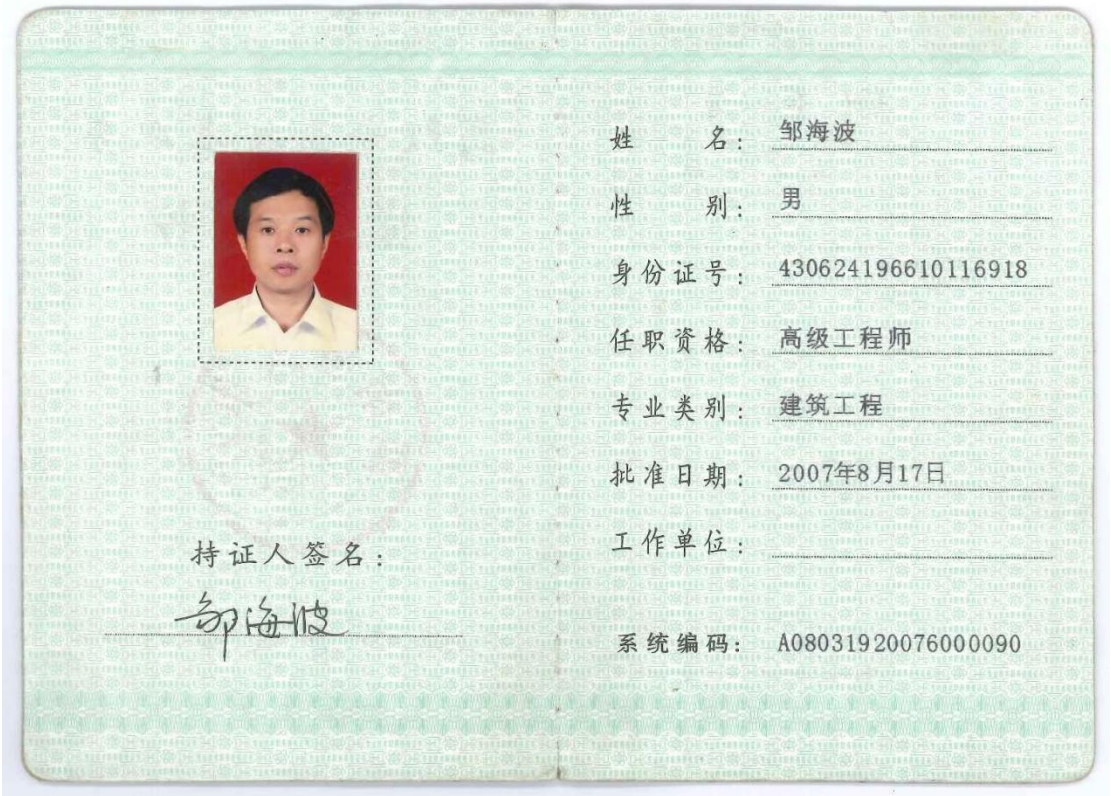 持证人签名：
邹海波
姓 名：邹海波
性 别：男
身份证号：430624196610116918
任职资格：高级工程师
专业类别：建筑工程
批准日期：2007年8月17日
工作单位：
系统编码：A08031920076000090